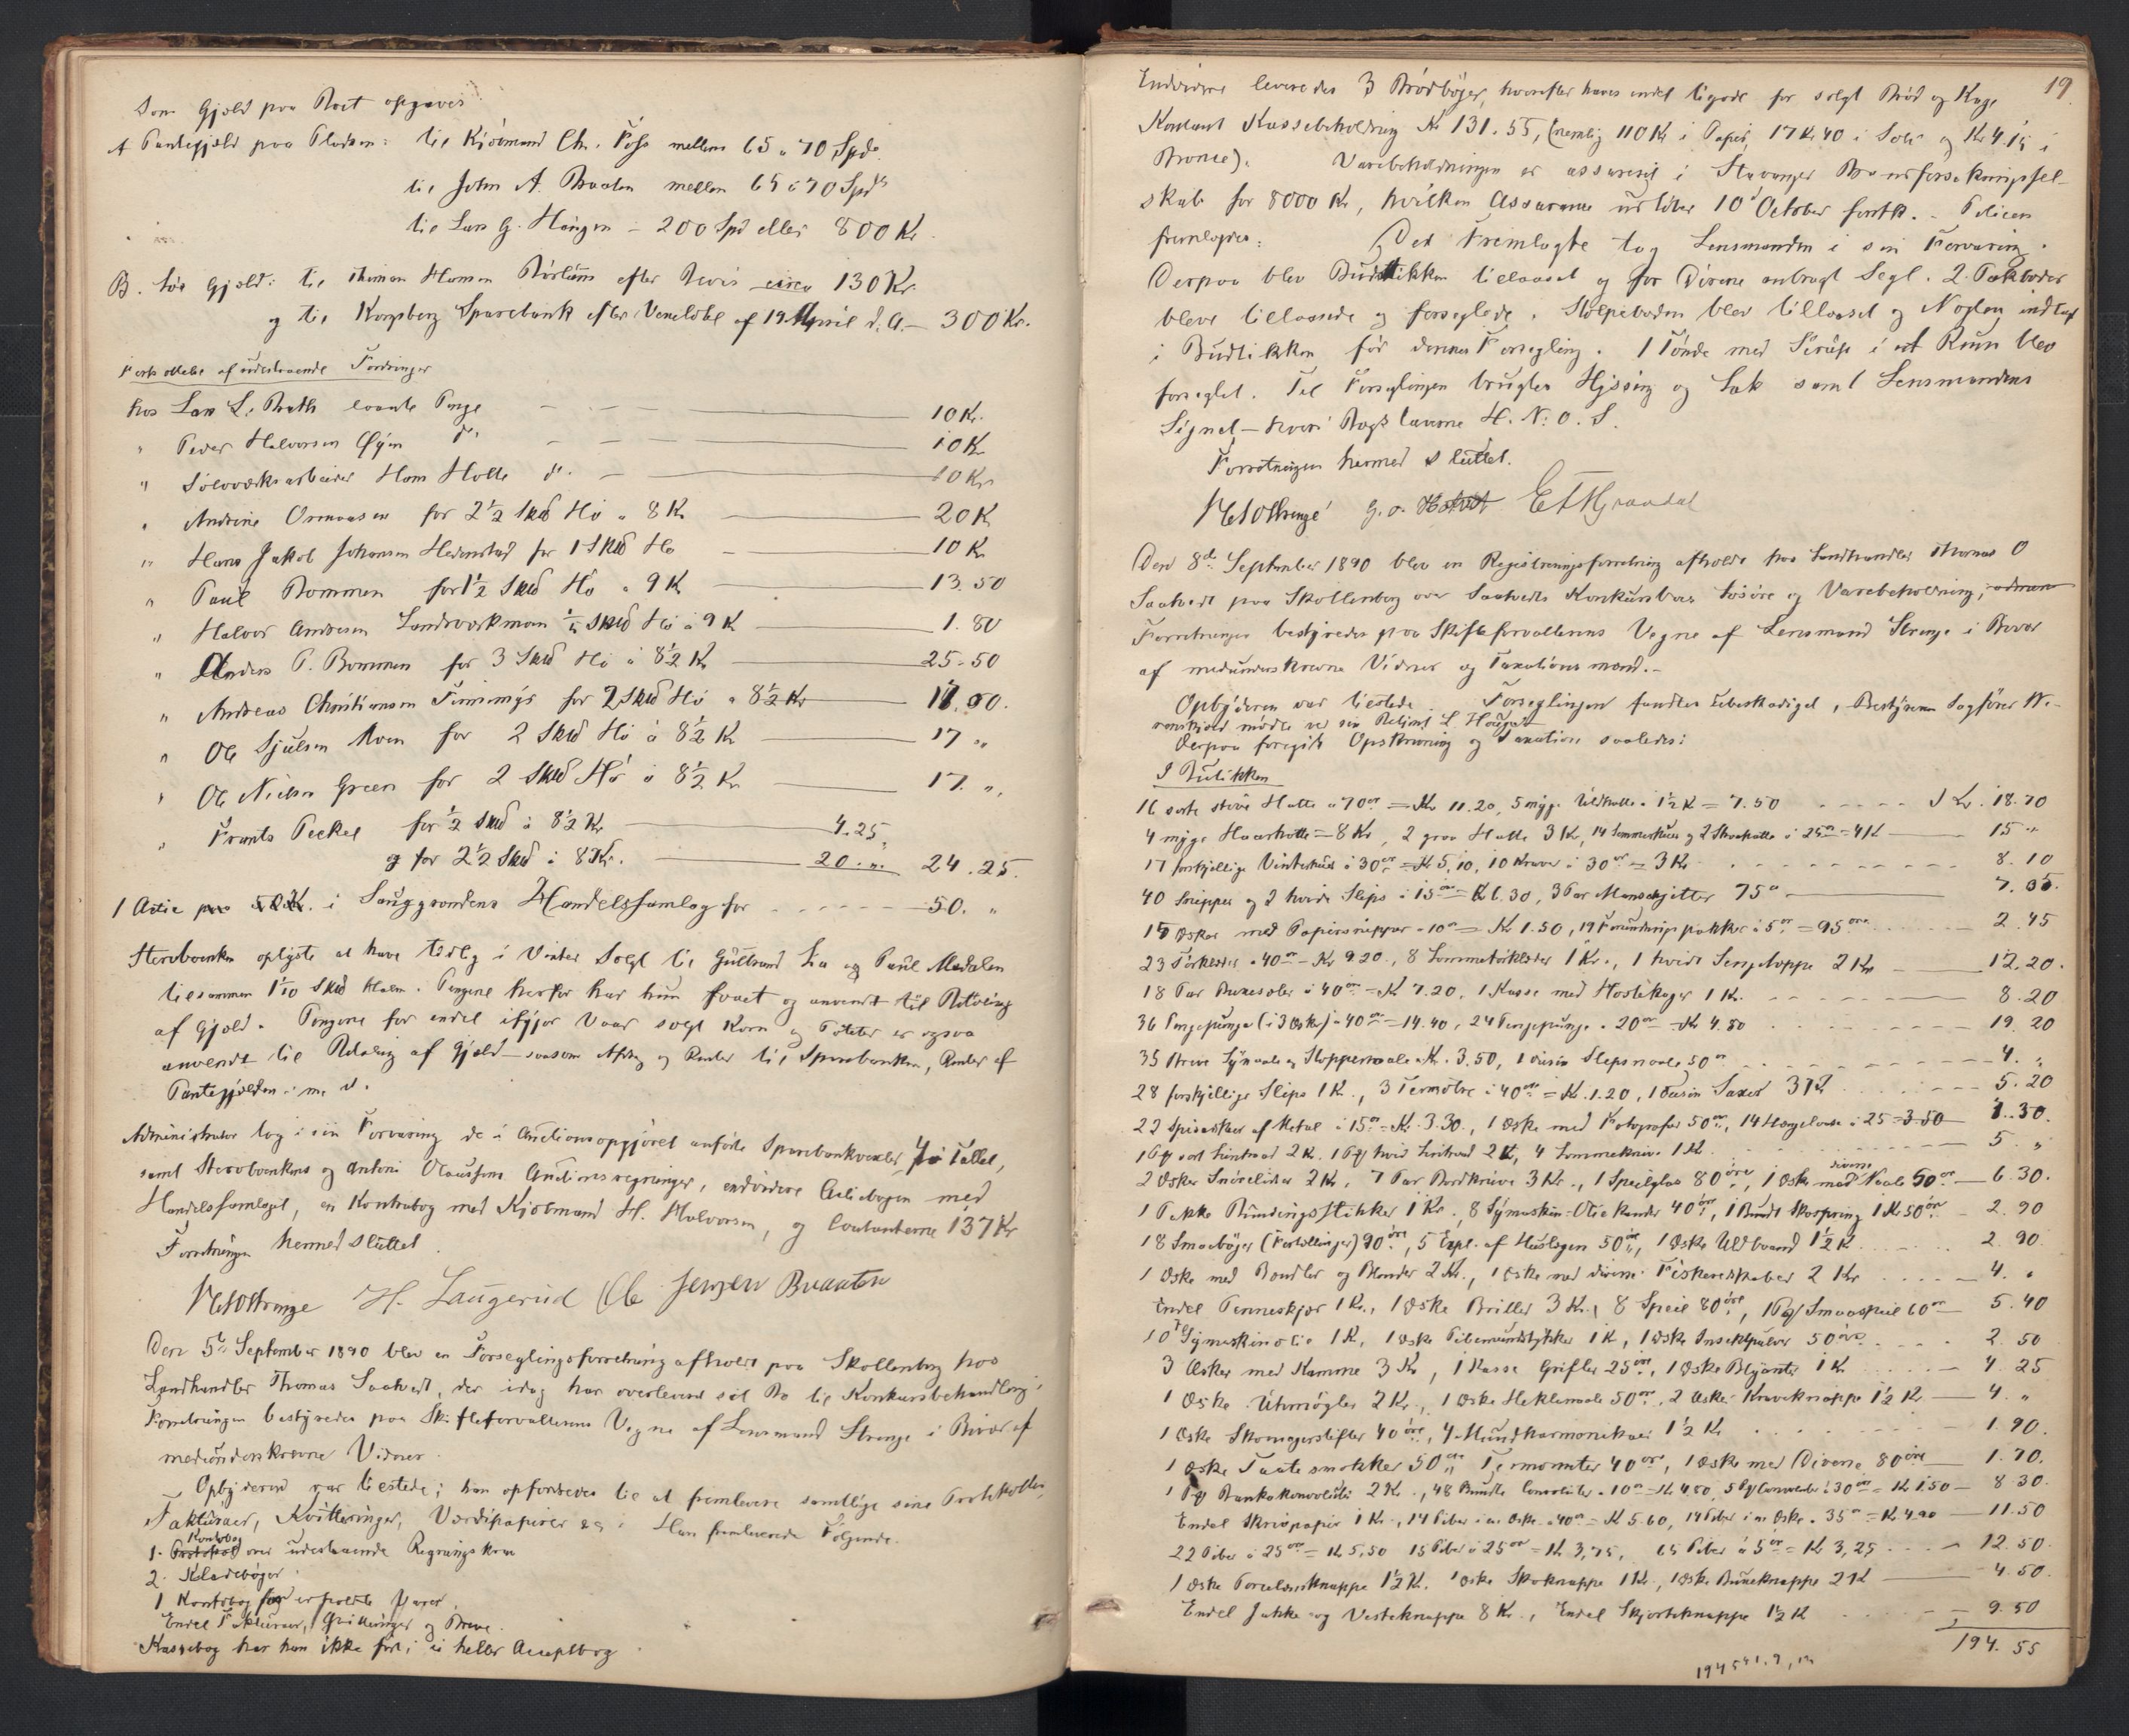 Som Gjæld paa Boet opgaves
A Pantegjæld paa Pladsen: til Kjøbmand Chr. Foss mellem 65 a 70 Spd.
til John A. Braaten mellem 65 a 70 Spd
til Lars G. Haugen = 200 Spd eller 800 Kr.
B. Løs Gjæld: til Thiman Hansen efter Bevis circa 130 Kr.
og til Kongsberg Sparebank efter Vexelobl. af 19 April d. A. — 300 Kr.
Fortegnelse af udestaaende Fordringer
hos Lars L. Bratli laante Penge — 10 Kr.
" Peder Halvorsen Øyen do — 10 Kr
" Sølvværksarbeider Hans Holte do. — 10 Kr
" Andrine Ormaasen for 2½ Skd Hø a 8 Kr — 20 Kr
" Hans Jakob Johansen Hedenstad for 1 Skd Hø — 10 Kr
" Paul Bommen for 1½ Skd Hø a 9 Kr — 13.50
" Halvor Andersen Landsværkmoen Skd Hø à 9 Kr — 1.80
" Anders P. Bommen for 3 Skd Hø à 8½ Kr — 25.50
" Andreas Christiansen for 2 Skd Hø a 8½ Kr — 17.00.
" Ole Sjulsen Moen for 2 Skd Hø à 8½ Kr — 17 "
" Ole Nielsen Green for 2 Skd Hø à 8½ Kr — 17. "
" Frants Peckel for ½ Skd à 8½ Kr — 4.25
og for 2½ Skd à 8 Kr. — 20. " 24.25.
1 Actie i Sauggrendens Handelssamlag for — 50. "
Stervboenken oplyste at have tidlig i Vinter solgt til Gulbrand Lia og Paul Medalen
tilsammen 1 1/10 Skd Halm. Pengene herfor har hun faaet og anvendt til Betaling
af Gjæld. Pengene for endel ifjor Vaar solgt Korn og Poteter er ogsaa
anvendt til Betaling af Gjæld — saasom Afdrag og Renter til Sparebanken, Renter af
Pantegjælden m. v.
Administrator tog i sin Forvaring de i Auctionsopgjøret anførte Sparebankvexler, i Tallet,
samt Stervboenkens og Antoni Olaussens Auctionsregninger, endvidere Actiebogen med
Handelssamlaget, en Kontrabog med Kjøbmand H. Halvorsen, og Contanterne 137 Kr
Forretningen hermed sluttet.
H. Laugerud Ole Jensen Braaten
Den 5te September 1890 blev en Forseglingsforretning afholdt paa Skollenborg hos
Landhandler Thomas Saatvedt, der idag har overleveret sit Bo til Konkursbehandling.
Forretningen bestyredes paa Skifteforvalterens Vegne af Lensmand Strenge i Bivær af
medunderskrevne Vidner.
Opbyderen var tilstede; han opfordredes til at fremlevere samtlige sine Protokoller,
Fakturaer, Kvitteringer, Værdipapirer &c. Han fremleverede Følgende.
1. Kontrabog over udestaaende Regningskrav
2. Kladebøger
1 Kontobog for
Endel Fakturaer, Kvitteringer og Breve.
Kassebog har han ikke ført; ei heller Acceptbog
19.
Endvidere leveredes 3 Brødbøger, hvorefter haves endel tilgode for solgt Brød og Kage
Kontant Kassebeholdning Kr 131.55, (nemlig 110 Kr i Papir, 17 Kr 40 i Sølv og Kr 4.15 i
Bronce). Varebeholdningen er assureret i Stavanger Brandforsikringssel-
skab for 8000 Kr, hvilken Assurance udløber 10de October førstk. – Policen
fremlagdes. Det Fremlagte tog Lensmanden i sin Forvaring.
Derpaa blev Butikken tillaaset og for Dørene anbragt Segl. 2 Pakboder
bleve tillaasede og forseglede. Stolpeboden blev tillaaset og Nøglen indlagt
i Butikken før dennes Forsegling. 1 Tønde med Sirup i et Rum blev
forseglet. Til Forseglingen brugtes Hyssing og Lak samt Lensmandens
Signet – hvori Bogstaverne H. N. O. S.
Forretningen hermed sluttet.
Den 8de September 1890 blev en Registreringsforretning afholdt hos Landhandler Thomas O
Saatvedt paa Skollenborg over Saatvedts Konkursboes Løsøre og Varebeholdning;
Forretningen bestyredes paa Skifteforvalterens Vegne af Lensmand Strenge i Bivær
af medunderskrevne Vidner og Taxationsmænd. –
Opbyderen var tilstede. Forseglingen fandtes ubeskadiget, Bestyreren Sagfører We-
renskjold mødte ved sin Betjent L Hougen
Derpaa foregik Opskrivning og Taxation saaledes:
I Butikken
16 sorte stive Hatte a 70 øre = Kr 11.20, 5 myge Uldhatte a 1½ K = 7.50 – Kr. 18.70
4 myge Haarhatte = 8 Kr, 2 graa Hatte 3 Kr, 14 Sommerhuer og 2 Straahatte à 25 ø = 4 Kr — 15 "
17 forskjellige Vinterhuer à 30 ør = Kr 5,10, 10 Kraver à 30 ør = 3 Kr — 8.10
40 Snipper og 2 hvide Slips à 15 øre = Kr 6.30, 3 Par Manschjetter 75 ø — 7.05.
15 Æsker med Papirsnipper a 10 ø = Kr 1.50, 19 pakker à 5 ør = 95 øre — 2.45
23 Tørklæder a 40 ø = Kr 9.20, 8 Lommetørklæder 1 Kr., 1 hvidt Sengeteppe 2 Kr — 12.20.
18 Par Buxeseler à 40 ø = Kr 7.20, 1 Kasse med Hostekager 1 Kr. — 8.20
36 Pengepunge (i 3 Æsker) a 40 ør = 14.40, 24 Pengepunge a 20 ør = Kr 4.80 — 19.20
35 Breve Synaale og Stoppenaale Kr. 3.50, 1 dusin Slipsnaale 50 ø — 4. "
28 forskjellige Slips 1 Kr., 3 à 40 øre = Kr. 1.20, 1 Dusin Saxer 3 Kr — 5.20
22 Spiseskeer af Metal à 15 ø = Kr. 3.30., 1 Æske med Fotografier 50 ør, 14 à 25 = 3.50 — 7.30.
1 Pk sort Lintraad 2 K. 1 Pk hvid Lintraad 2 Kr, 4 Lommekniver 1 Kr. — 5. "
2 Æsker Snørelidser 2 Kr, 7 Par Bordknive 3 Kr., 1 Speilglas 80 øre, 1 Æske med diverse Naale 50 ør — 6.30.
1 Pakke Bindingsstikker 1 Kr., 8 Symaskin-Oliekander 40 øre, 1 Bundt 1 Kr 50 øre — 2.90
18 Smaabøger (Fortællinger) 90 øre, 5 Expl. af Huslogen 50 øre, 1 Æske Uldbaand 1½ Kr — 2.90
1 Æske med Bændler og Blonder 2 Kr., 1 Æske med diverse Fiskeredskaber 2 Kr — 4. "
Endel Penneskjæ 1 Kr., 1 Æske Briller 3 Kr., 8 Speil 80 øre, 1 Pk Smaaspeil 60 ør — 5.40
10 Fl Symaskinolie 1 Kr, 1 Æske Pibemundstykker 1 K, 1 Æske Insektpulver 50 øre — 2.50
3 Æsker med Kamme 3 Kr, 1 Kasse Grifler 25 øre, 1 Æske Blyanter 1 Kr — 4.25
1 Æske Uhrnøgler 2 Kr., 1 Æske Heklenaale 50 ør, 2 Æsker Kraveknappe 1½ Kr. — 4. "
1 Æske Skomagerstifter 40 øre, 4 Mundharmonikaer 1½ Kr — 1.90.
1 Æske Taatesmokker 50 ør, Termometer 40 øre, 1 Æske med Diverse 80 øre — 1.70.
1 Pk Bankokonvolutter 2 Kr., 48 Bundter Convolutter a 10 ø = Kr 4.80, 5 Pk Convolutter à 30 ør = Kr 1.50 — 8.30.
Endel Skrivpapir 1 Kr., 14 Piber i en Æske a 40 ø = K 5.60, 14 Piber i en Æske a 35 ø = K 4.90 — 11.50
22 Piber à 25 øre = Kr 5,50 15 Piber à 25 ør = Kr. 3,75, 65 Piber à 5 ør = Kr 3,25 — 12.50.
1 Æske Porcelænsknappe 1½ K. 1 Æske Skoknappe 1 Kr., 1 Æske Buxeknappe 2 K — 4.50.
Endel Jakke- og Vesteknappe 8 Kr., Endel Skjorteknappe 1½ K — 9.50
194.55